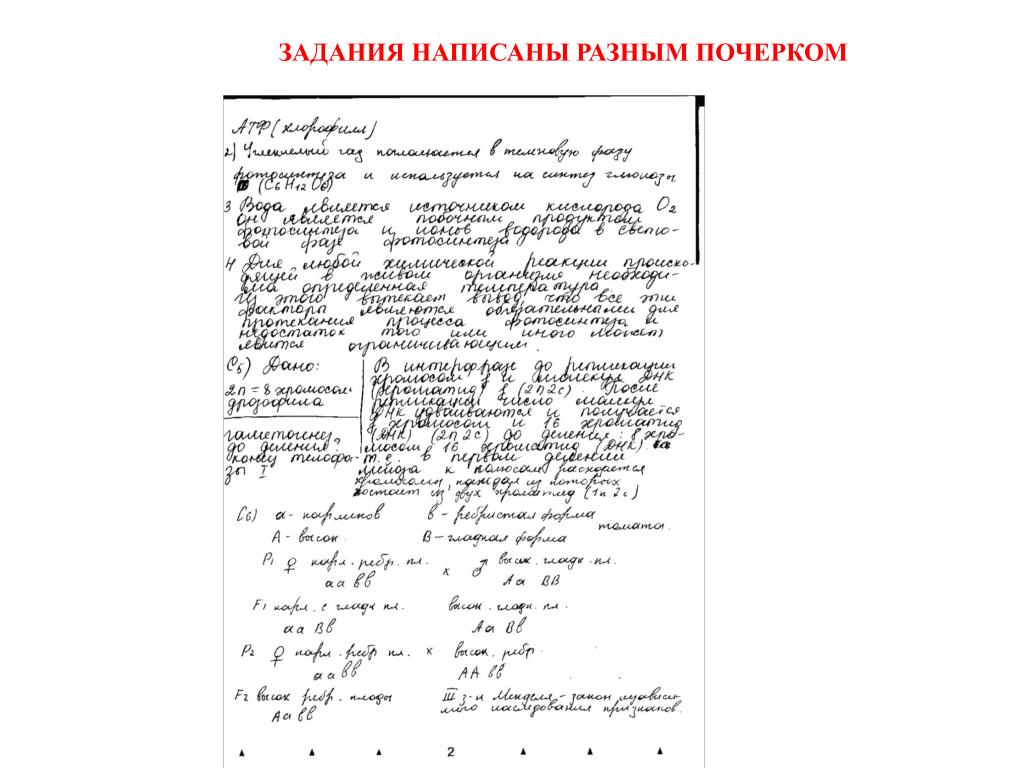 ЗАДАНИЯ НАПИСАНЫ РАЗНЫМ ПОЧЕРКОМ
АТФ (хлорофилл)
2) Углекислый газ поглощается в темновую фазу
фотосинтеза и используется на синтез глюкозы
(C6H12O6)
3 Вода является источником кислорода O2
он является побочным продуктом
фотосинтеза и ионов водорода в свето-
вой фазе фотосинтеза
4 Для любой химической реакции происхо-
дящей в живом организме необходи-
ма определенная температура.
Из этого вытекает вывод, что все эти
факторы являются обязательными для
протекания процесса фотосинтеза и
недостаток того или иного может
явится ограничивающим.
C5) Дано:
2n = 8 хромосом
дрозофила
гаметогенез,
до деления,
конец телофа-
зы I
В интерфазе до репликации
хромосом 8 и молекул ДНК
(хроматид) 8 (2n2c). После
репликации число молекул
ДНК удваиваются и получается
8 хромосом и 16 хроматид
(ДНК) (2n2c) до деления: 8 хро-
мосом 16 хроматид (ДНК)
т.е. в первом делении
мейоза к полюсам расходятся
хромосомы, каждая из которых
состоит из двух хроматид (1n2c)
C6) а - карликов в - ребристая форма
томата.
А - высок. В - гладкая форма
P1 ♀ карл. ребр. пл. x ♂ высок. гладк. пл.
аавв Аа ВВ
F1 карл. с гладк пл. высок. гладк. пл.
аа Вв Аа Вв
P2 ♀ карл. ребр пл. x высок. ребр.
аавв АА вв
F2 высок ребр. плоды III з-н Менделя - закон независи-
Аавв мого наследования признаков.
2